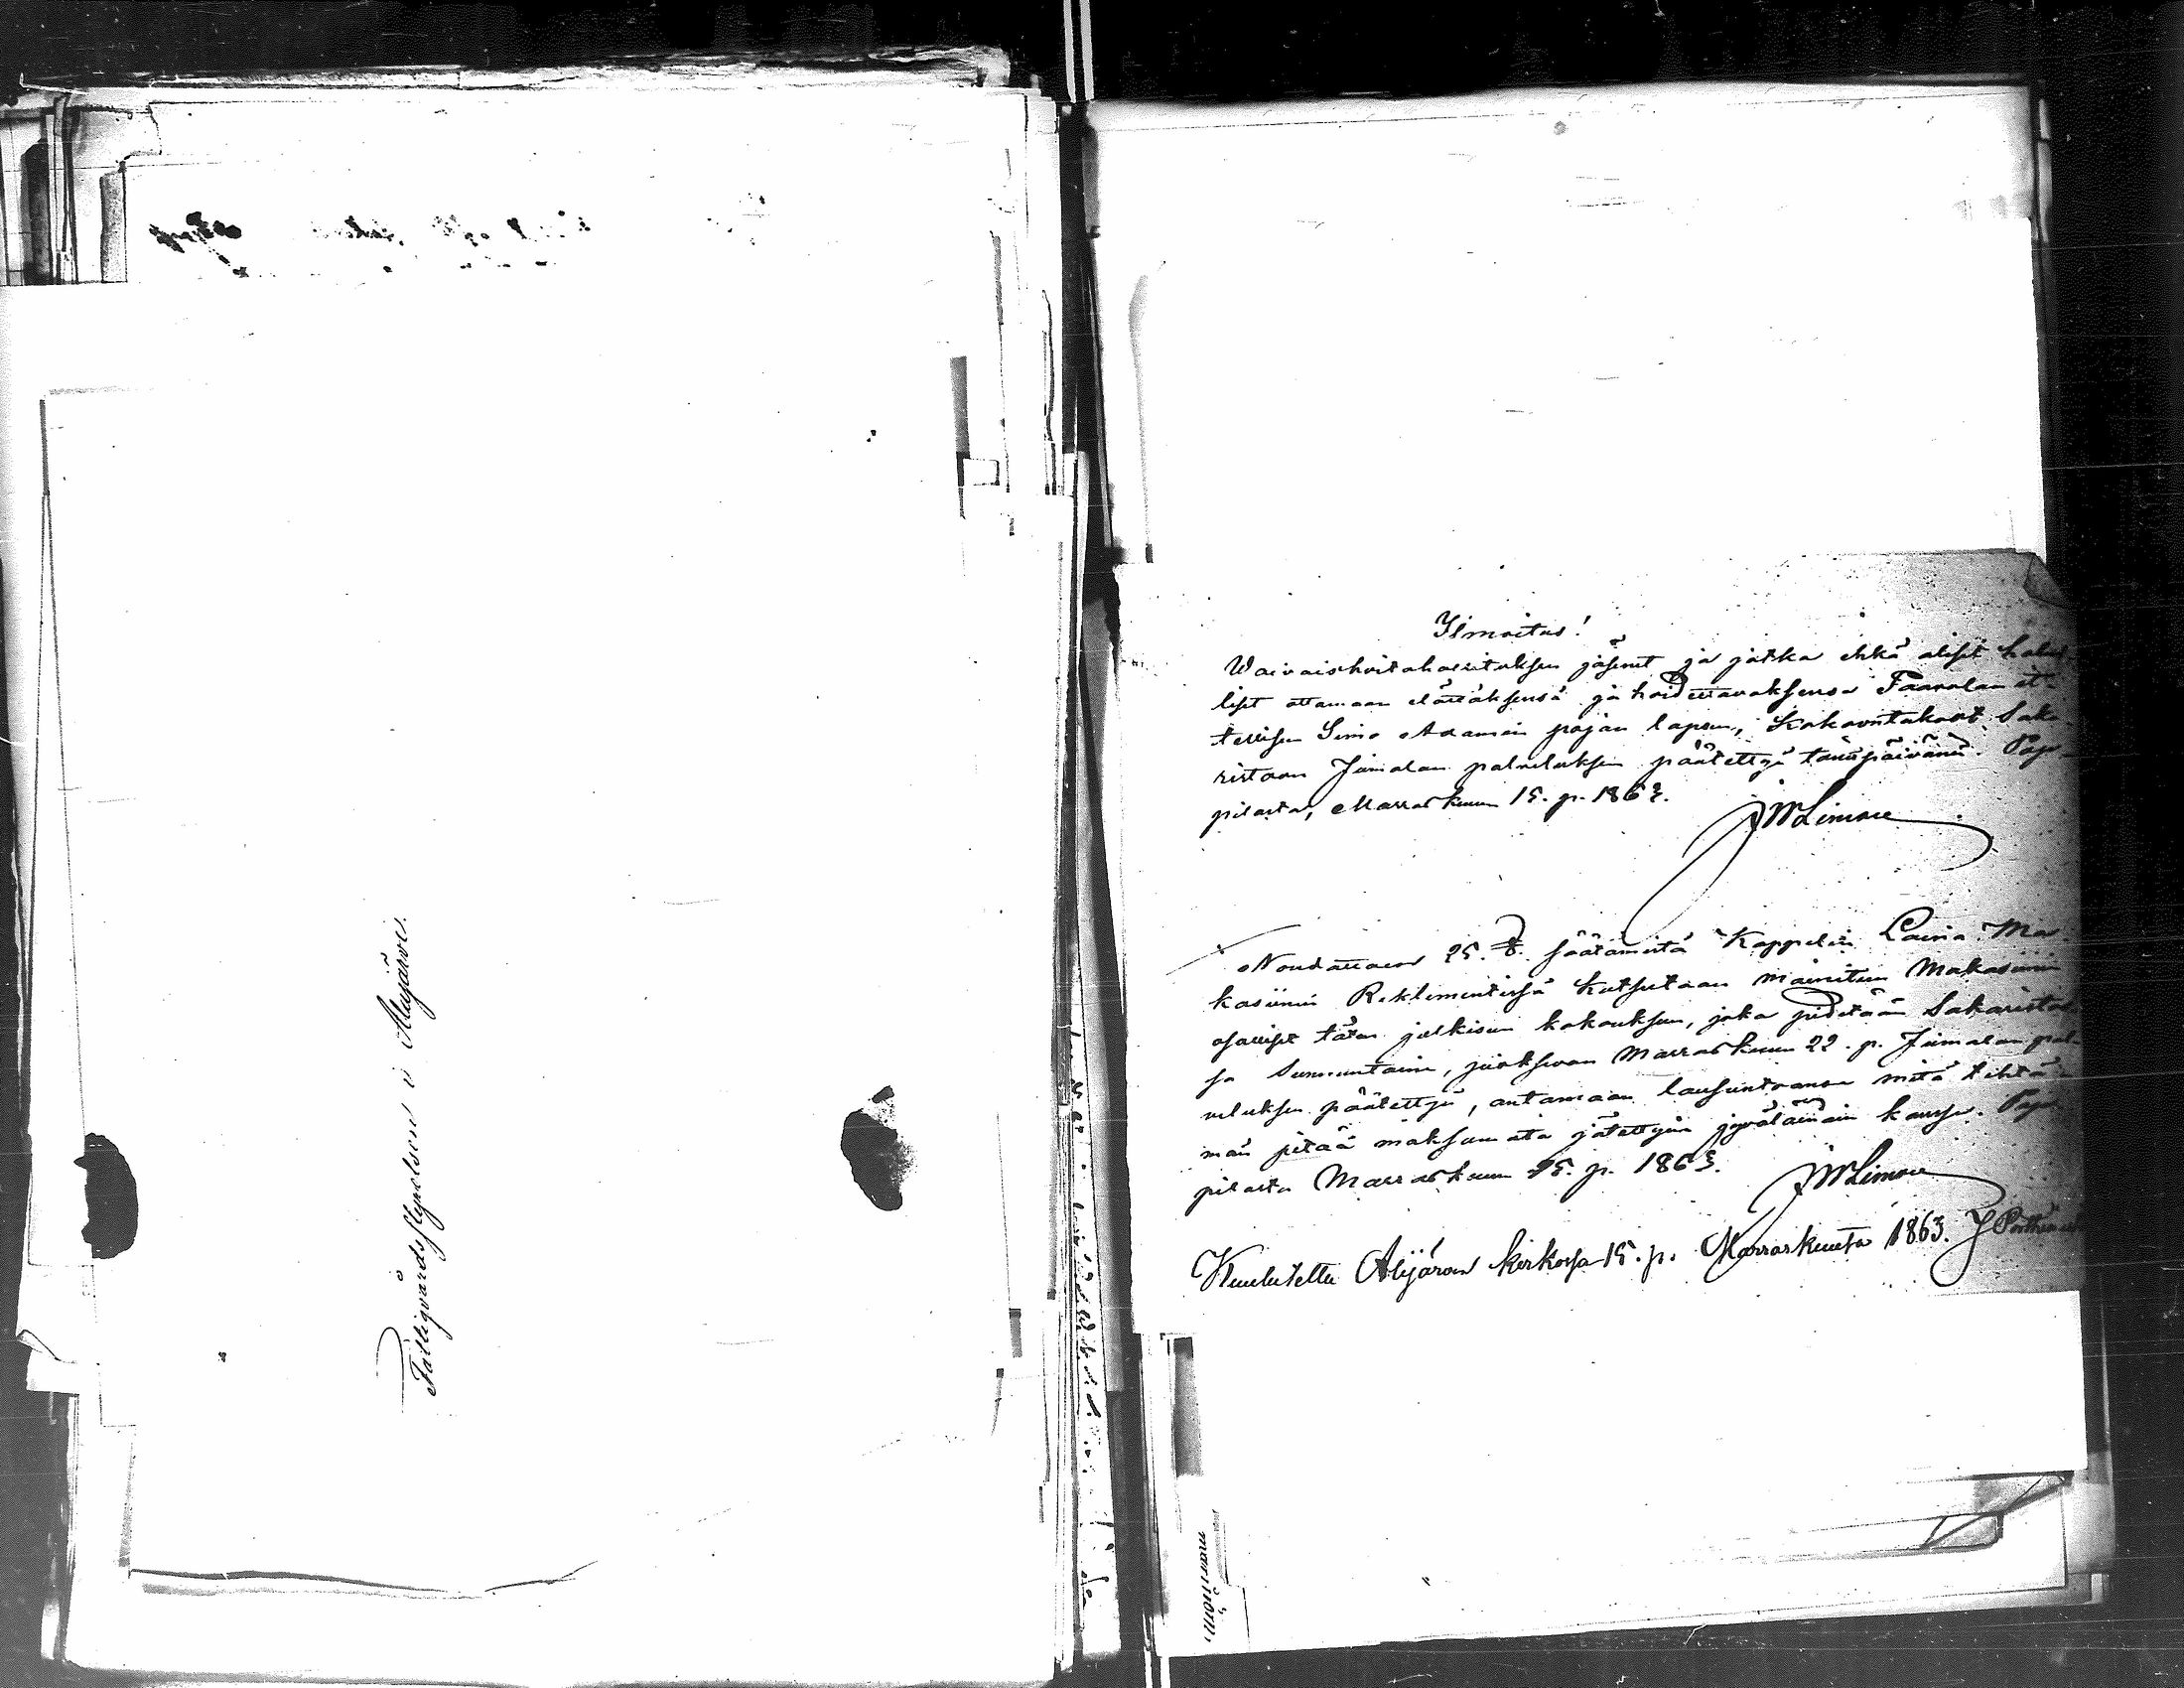 Fattigvårdsstyrelsen i Alajärvi.
Ilmoitus!
Waivaishoitohallituksen jäsenet ja jotka ehkä olisit halul-
liset ottamaan elättäksensä ja hoidettavaksensa Paavolan it-
tellisen Simo Adamin pojan lapsen, kokoontukoot Saka-
ristoon Jumalan palveluksen päätettyä tänäpäivänä. Pap-
pilasta, Marraskuun 15. p. 1863.
JWLimon
Noudattaen 25. §. säätämistä Kappelin Laina Ma-
kasiinin Reklementissä kutsutaan mainitun Makasiinin
osalliset täten julkisen kokouksen, joka pidetään Sakaristos-
sa Sunnuntaina, juoksevan Marraskuun 22. p. Jumalan pal-
veluksen päätettyä, antamaan lausuntoansa mitä tehtä-
män pitää maksamata jätettyin jyvälainain kanssa. Pap-
pilasta Marraskuun 15. p. 1863.
JWLimon
Kuulutettu Alajärven kirkossa 15. p. Marraskuuta 1863. J